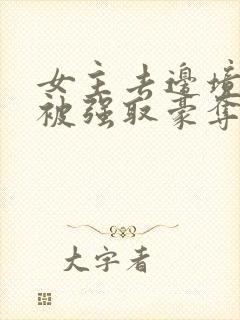 女主去邊境
被强取豪奪
大字者